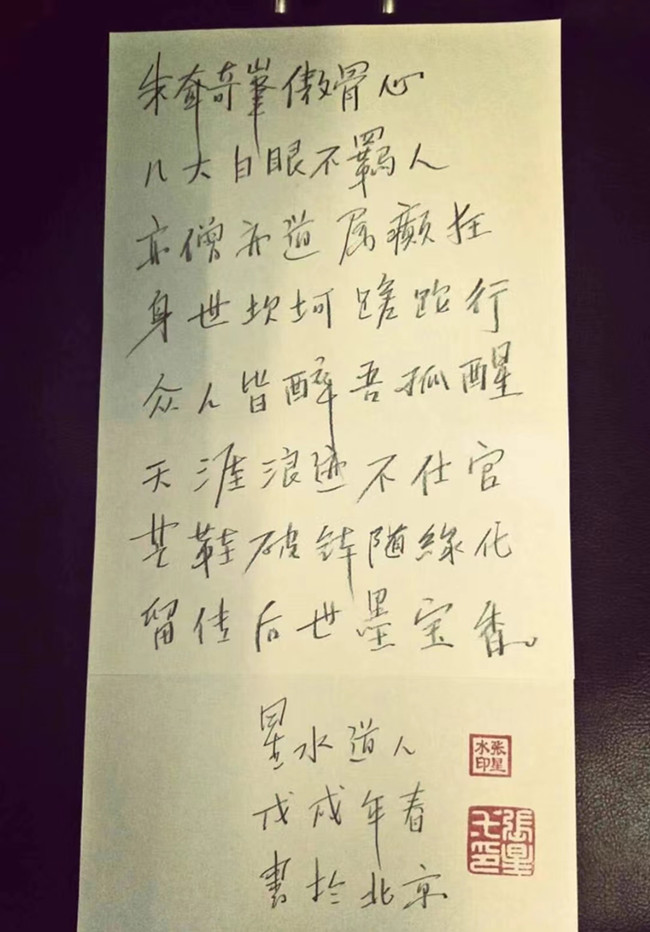 朱耷奇峯傲骨心
八大白眼不羈人
亦僧亦道属癫狂
身世坎坷蹉跎行
众人皆醉吾孤醒
天涯浪迹不仕官
芒鞋破钵随緣化
留传后世墨宝香。
星水道人
戊戌年春
書於北京
张星水印
張星印